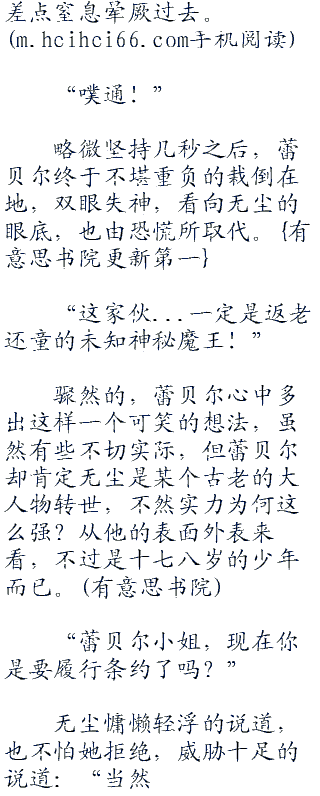 差点窒息晕厥过去。
(m.hcihci66.com手机阅读)
“噗通！”
略微坚持几秒之后，蕾
贝尔终于不堪重负的栽倒在
地，双眼失神，看向无尘的
眼底，也由恐慌所取代。{有
意思书院更新第一}
“这家伙...一定是返老
还童的未知神秘魔王！”
骤然的，蕾贝尔心中多
出这样一个可笑的想法，虽
然有些不切实际，但蕾贝尔
却肯定无尘是某个古老的大
人物转世，不然实力为何这
么强？从他的表面外表来
看，不过是十七八岁的少年
而已。(有意思书院)
“蕾贝尔小姐，现在你
是要履行条约了吗？”
无尘慵懒轻浮的说道，
也不怕她拒绝，威胁十足的
说道：“当然